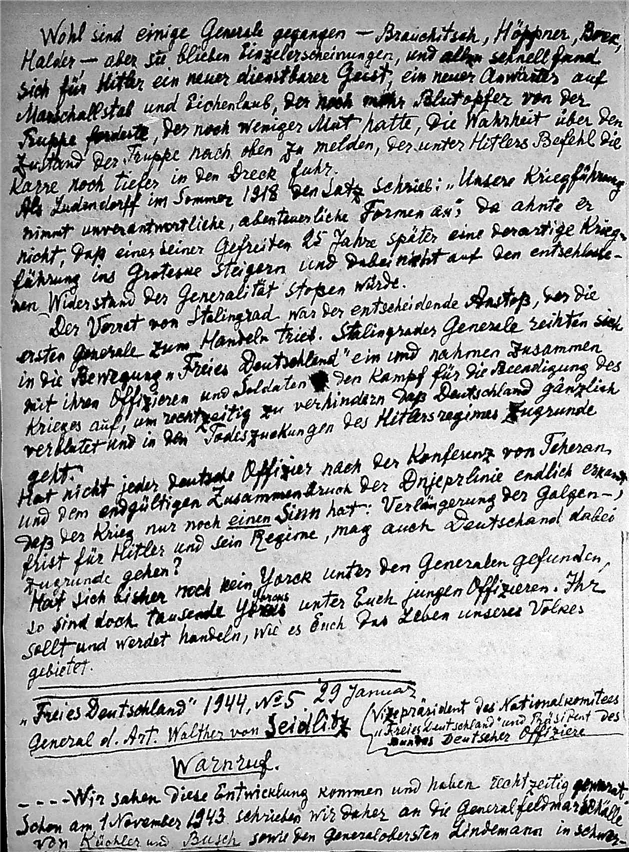 Wohl sind einige Generale gegangen — Brauchitsch, Höppner, Bock,
Halder — aber sie blieben Einzelerscheinungen, und allzu schnell fand
sich für Hitler ein neuer dienstbarer Geist, ein neuer Anwärter auf
Marschallstab und Eichenlaub, der noch mehr Blutopfer von der
Truppe forderte, der noch weniger Mut hatte, die Wahrheit über den
Zustand der Truppe nach oben zu melden, der unter Hitlers Befehl die
Karre noch tiefer in den Dreck fuhr.
Als Ludendorff im Sommer 1918 den Satz schrieb: „Unsere Kriegführung
nimmt unverantwortliche, abenteuerliche Formen an", da ahnte er
nicht, daß einer seiner Gefreiten 25 Jahre später eine derartige Krieg-
führung ins Groteske steigern und dabei nicht auf den entschlosse-
nen Widerstand der Generalität stoßen würde.
Der Verrat von Stalingrad war der entscheidende Anstoß, der die
ersten Generale zum Handeln trieb. Stalingrader Generale reihten sich
in die Bewegung „Freies Deutschland" ein und nahmen zusammen
mit ihren Offizieren und Soldaten den Kampf für die Beendigung des
Krieges auf, um rechtzeitig zu verhindern daß Deutschland gänzlich
verblutet und in den Todeszuckungen des Hitlersregimes zugrunde
geht.
Hat nicht jeder deutsche Offizier nach der Konferenz von Teheran
und dem endgültigen Zusammenbruch der Dnjeprlinie endlich erkannt,
daß der Krieg nur noch einen Sinn hat: Verlängerung der Galgen-
frist für Hitler und sein Regime, mag auch Deutschand dabei
zugrunde gehen?
Hat sich bisher noch kein Yorck unter den Generalen gefunden,
so sind doch tausende Yorcks unter Euch jungen Offizieren. Ihr
sollt und werdet handeln, wie es Euch das Leben unseres Volkes
gebietet.
„Freies Deutschland" 1944, № 5 29 Januar
General d. Art. Walther von Seidlitz (Vizepräsident des Nationalkomitees
„Freies Deutschland" und Präsident des
Bundes Deutscher Offiziere
Warnruf.
- - - - Wir sahen diese Entwicklung kommen und haben rechtzeitig gewarnt.
Schon am 1 November 1943 schrieben wir daher an die Generalfeldmarschälle
von Küchler und Busch sowie den Generalobersten Lindemann in schwer-